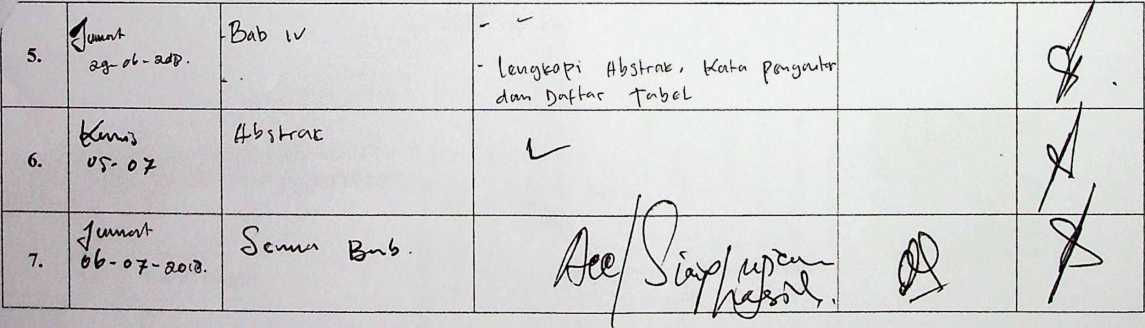 5.
Jumat
29-06-2018.
- Bab IV
- Lengkapi Abstrak, Kata pengantar
dan Daftar Tabel
6.
Kamis
05-07
Abstrak
7.
Jumat
06-07-2018.
Semua Bab.
Acc/Siap/ujian
hasil.